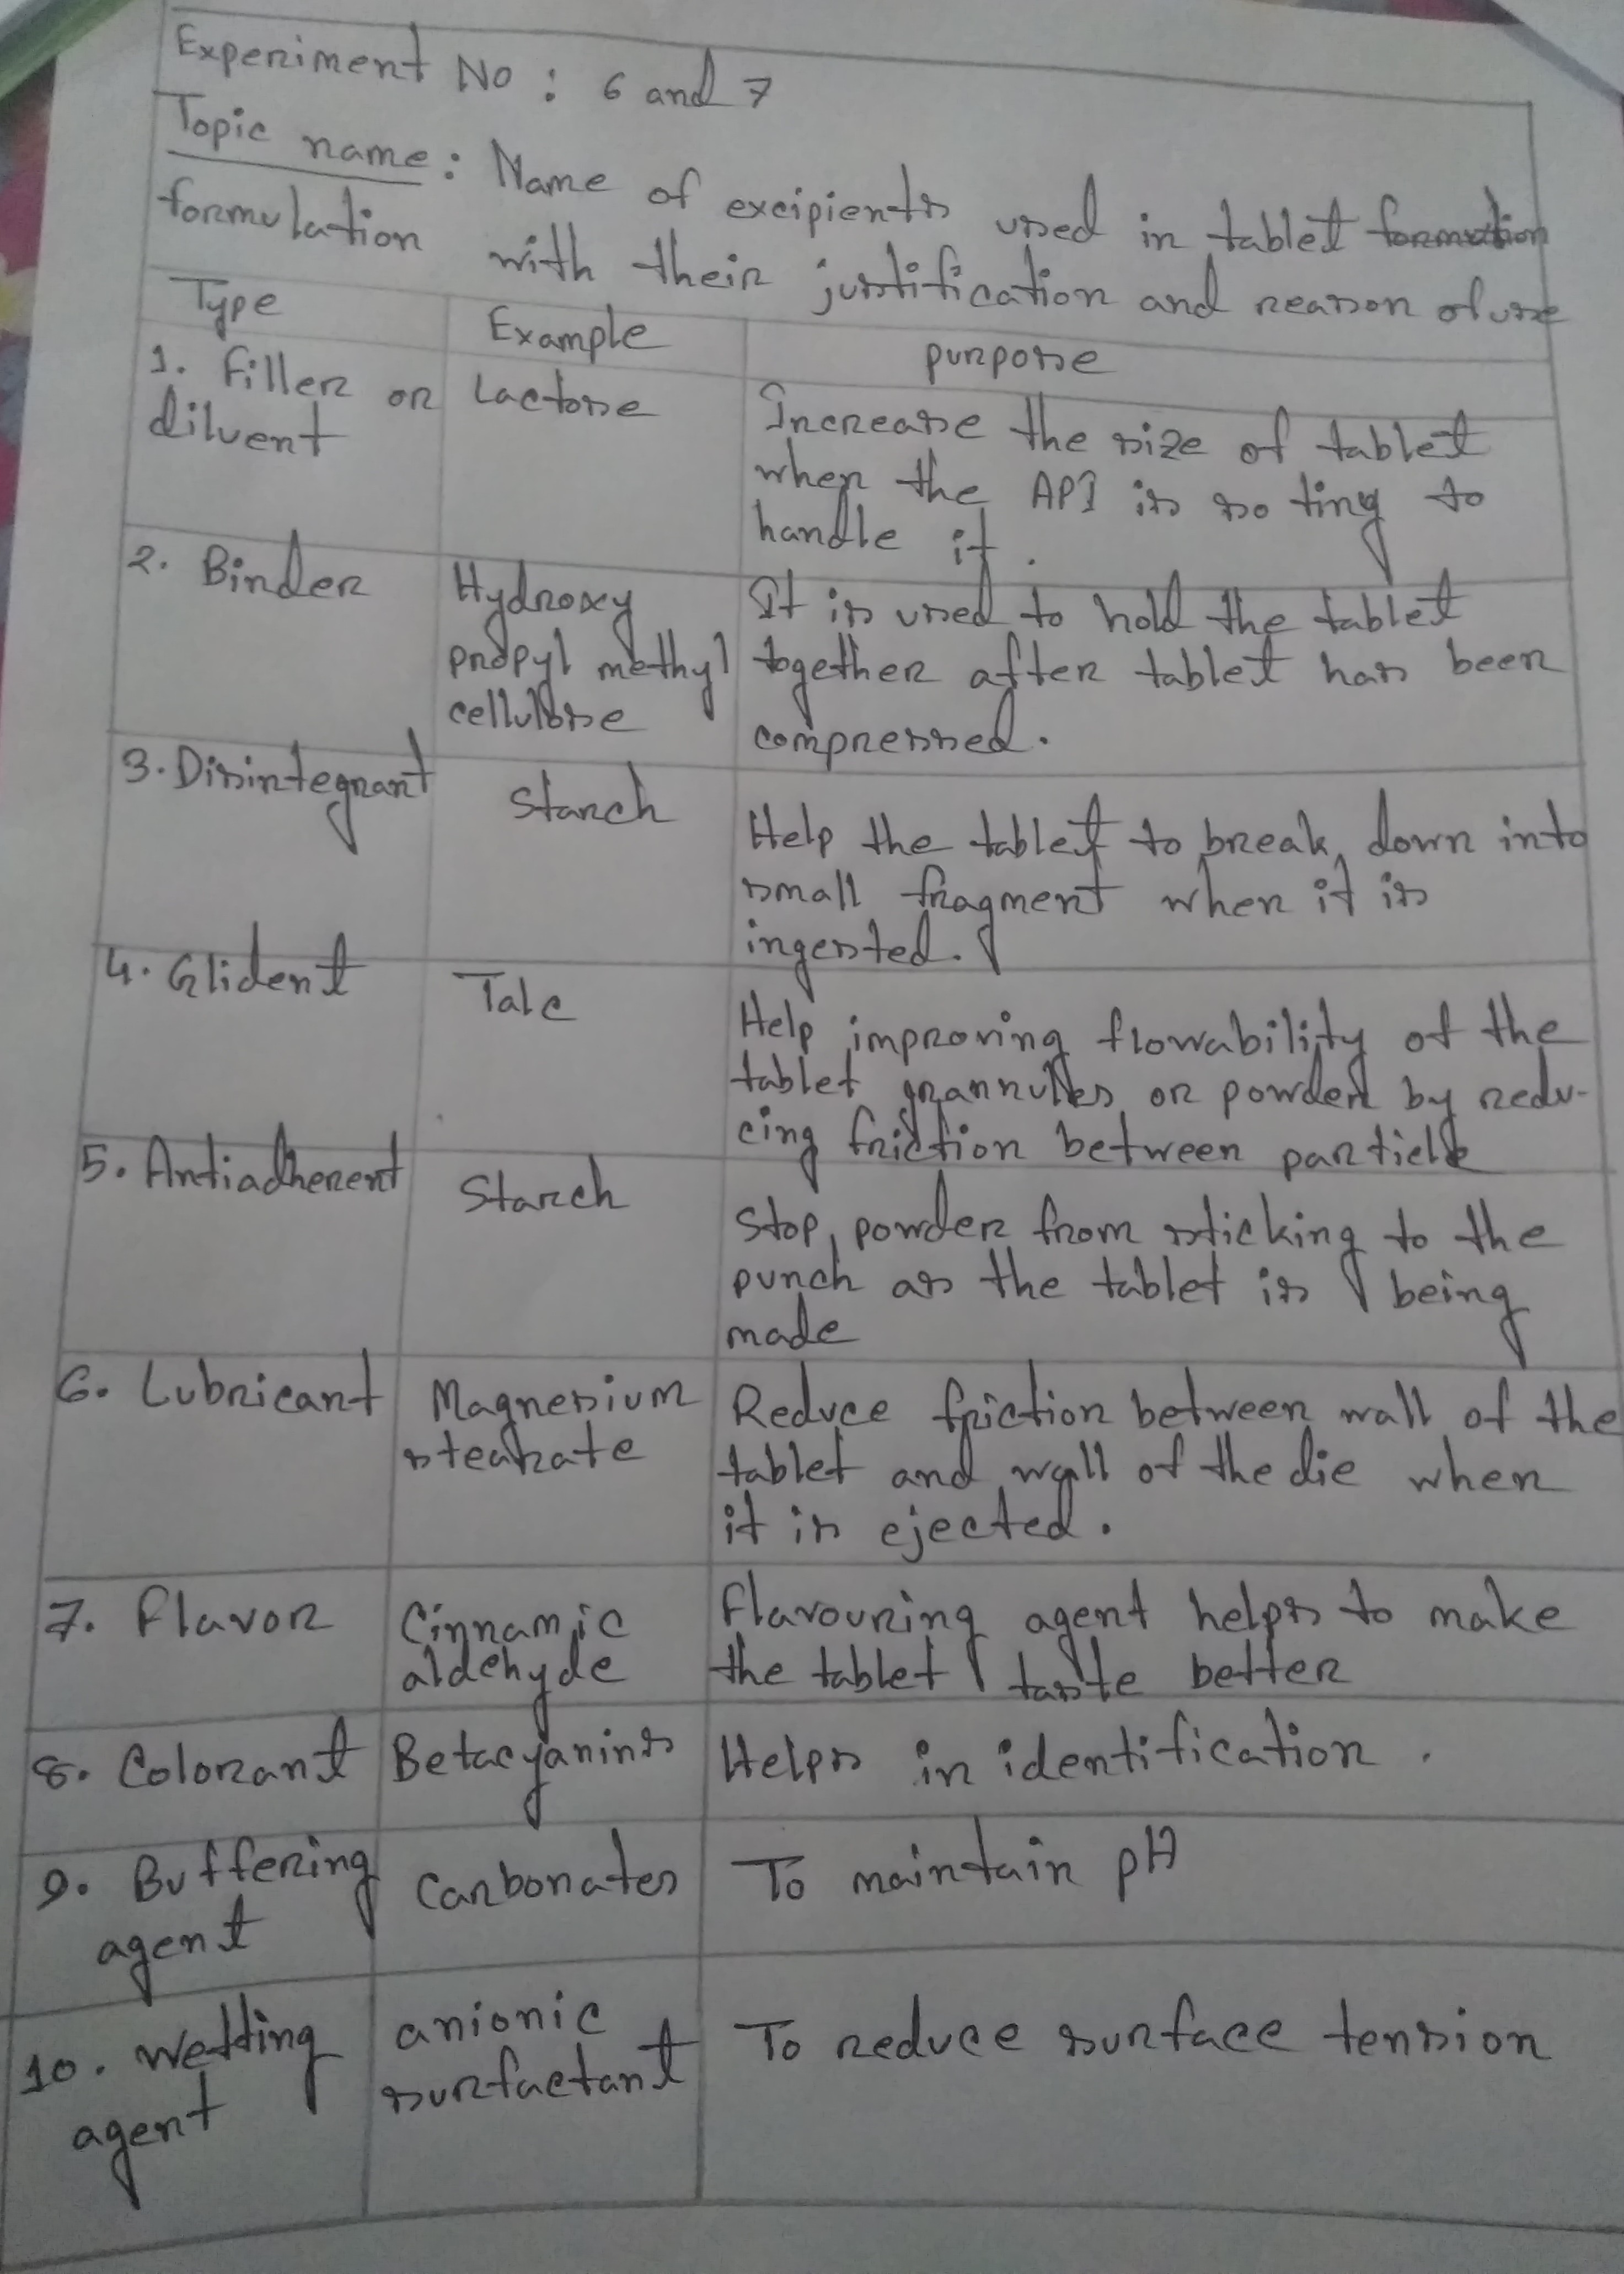 Experiment No : 6 and 7
Topic name : Name of excipients used in tablet
formulation with their justification and reason of use
Type
Example
purpose
1. Filler or
diluent
Lactose
Increase the size of tablet
when the API is so ting to
handle it.
2. Binder
Hydroxy
propyl methyl
cellulose
It is used to hold the tablet
together after tablet has been
compressed.
3. Disintegrant
Starch
Help the tablet to break down into
small fragment when it is
ingested.
4. Glident
Talc
Help improving flowability of the
tablet grannules or powder by redu-
cing friction between particle
5. Antiadherent
Starch
Stop powder from sticking to the
punch as the tablet is being
made
6. Lubricant
Magnesium
stearate
Reduce friction between wall of the
tablet and wall of the die when
it is ejected.
7. Flavor
Cinnamic
aldehyde
Flavouring agent helps to make
the tablet taste better
8. Colorant
Betacyanins
Helps in identification.
9. Buffering
agent
Carbonates
To maintain pH
10. Wetting
agent
anionic
surfactant
To reduce surface tension